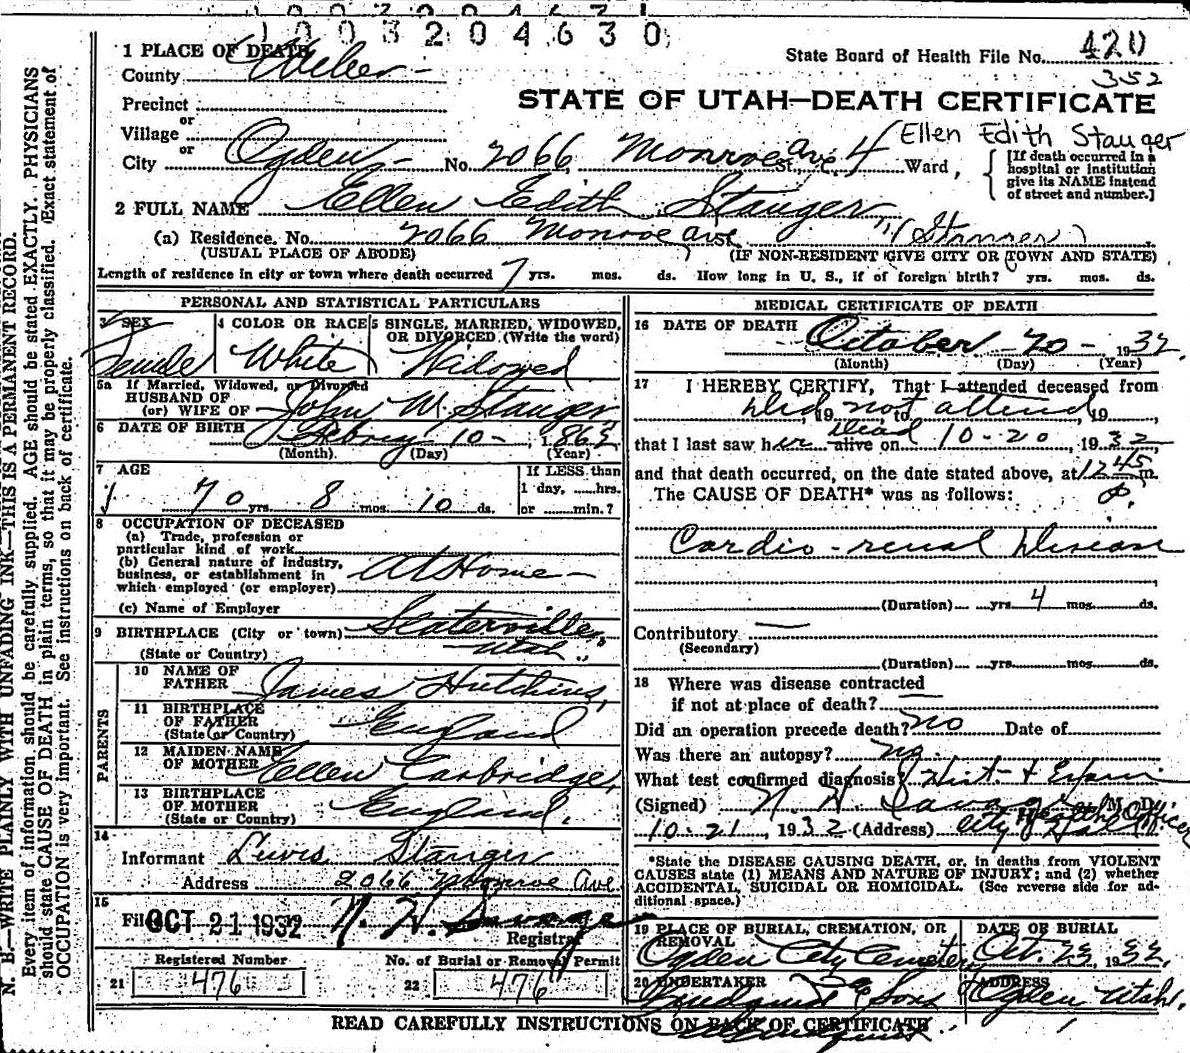 1003204630
1 PLACE OF DEATH
County Weber
State Board of Health File No. 420
352
Precinct
or
STATE OF UTAH—DEATH CERTIFICATE
Village
or
Ellen Edith Stauger
City Ogden No. 2066 Monroe Ave St., 4 Ward,
[If death occurred in a hospital or institution give its NAME instead of street and number.]
2 FULL NAME Ellen Edith Stauger
(a) Residence. No. 2066 Monroe Ave (Stanger)
(USUAL PLACE OF ABODE) (IF NON-RESIDENT GIVE CITY OR TOWN AND STATE)
Length of residence in city or town where death occurred 7 yrs. mos. ds. How long in U. S., if of foreign birth? yrs. mos. ds.
PERSONAL AND STATISTICAL PARTICULARS
3 SEX
Female
4 COLOR OR RACE
White
5 SINGLE, MARRIED, WIDOWED, OR DIVORCED. (Write the word)
Widowed
5a If Married, Widowed, or Divorced
HUSBAND OF
(or) WIFE OF John W. Stauger
6 DATE OF BIRTH 10- 1863
(Month) (Day) (Year)
7 AGE
70 yrs. 8 mos. 10 ds.
If LESS than
1 day, ......hrs.
or ......min.?
8 OCCUPATION OF DECEASED
(a) Trade, profession or
particular kind of work
(b) General nature of industry,
business, or establishment in
which employed (or employer) At Home
(c) Name of Employer
9 BIRTHPLACE (City or town) Slaterville,
(State or Country) Utah
PARENTS
10 NAME OF FATHER James Hutchins,
11 BIRTHPLACE OF FATHER England
(State or Country)
12 MAIDEN NAME OF MOTHER Ellen Carbridge,
13 BIRTHPLACE OF MOTHER England.
(State or Country)
14
Informant Lewis Stanger
Address 2066 Monroe Ave.
15
Filed OCT 21 1932 N. H. Savage
Registrar
Registered Number
21 476
No. of Burial or Removal Permit
22 476
MEDICAL CERTIFICATE OF DEATH
16 DATE OF DEATH
October 20- 1932
(Month) (Day) (Year)
17 I HEREBY CERTIFY, That I attended deceased from
Did not attend, 19 to 19
that I last saw her alive on Dead 10-20, 1932
and that death occurred, on the date stated above, at 1245 m.
The CAUSE OF DEATH* was as follows: P.
Cardio-renal Disease
(Duration) yrs. 4 mos. ds.
Contributory —
(Secondary)
(Duration) yrs. mos. ds.
18 Where was disease contracted
if not at place of death? —
Did an operation precede death? no Date of
Was there an autopsy? no.
What test confirmed diagnosis? Hist. + Exam
(Signed) N. H. Savage M. D.
Health Officer
10-21, 1932 (Address) City Hall
*State the DISEASE CAUSING DEATH, or, in deaths from VIOLENT
CAUSES state (1) MEANS AND NATURE OF INJURY; and (2) whether
ACCIDENTAL, SUICIDAL OR HOMICIDAL. (See reverse side for ad-
ditional space.)
19 PLACE OF BURIAL, CREMATION, OR REMOVAL
Ogden City Cemetery
DATE OF BURIAL
Oct. 23, 1932.
20 UNDERTAKER
Lindquist & Sons
ADDRESS
Ogden Utah.
READ CAREFULLY INSTRUCTIONS ON BACK OF CERTIFICATE
N. B.—WRITE PLAINLY WITH UNFADING INK—THIS IS A PERMANENT RECORD.
Every item of information should be carefully supplied. AGE should be stated EXACTLY. PHYSICIANS
should state CAUSE OF DEATH in plain terms, so that it may be properly classified. Exact statement of
OCCUPATION is very important. See instructions on back of certificate.